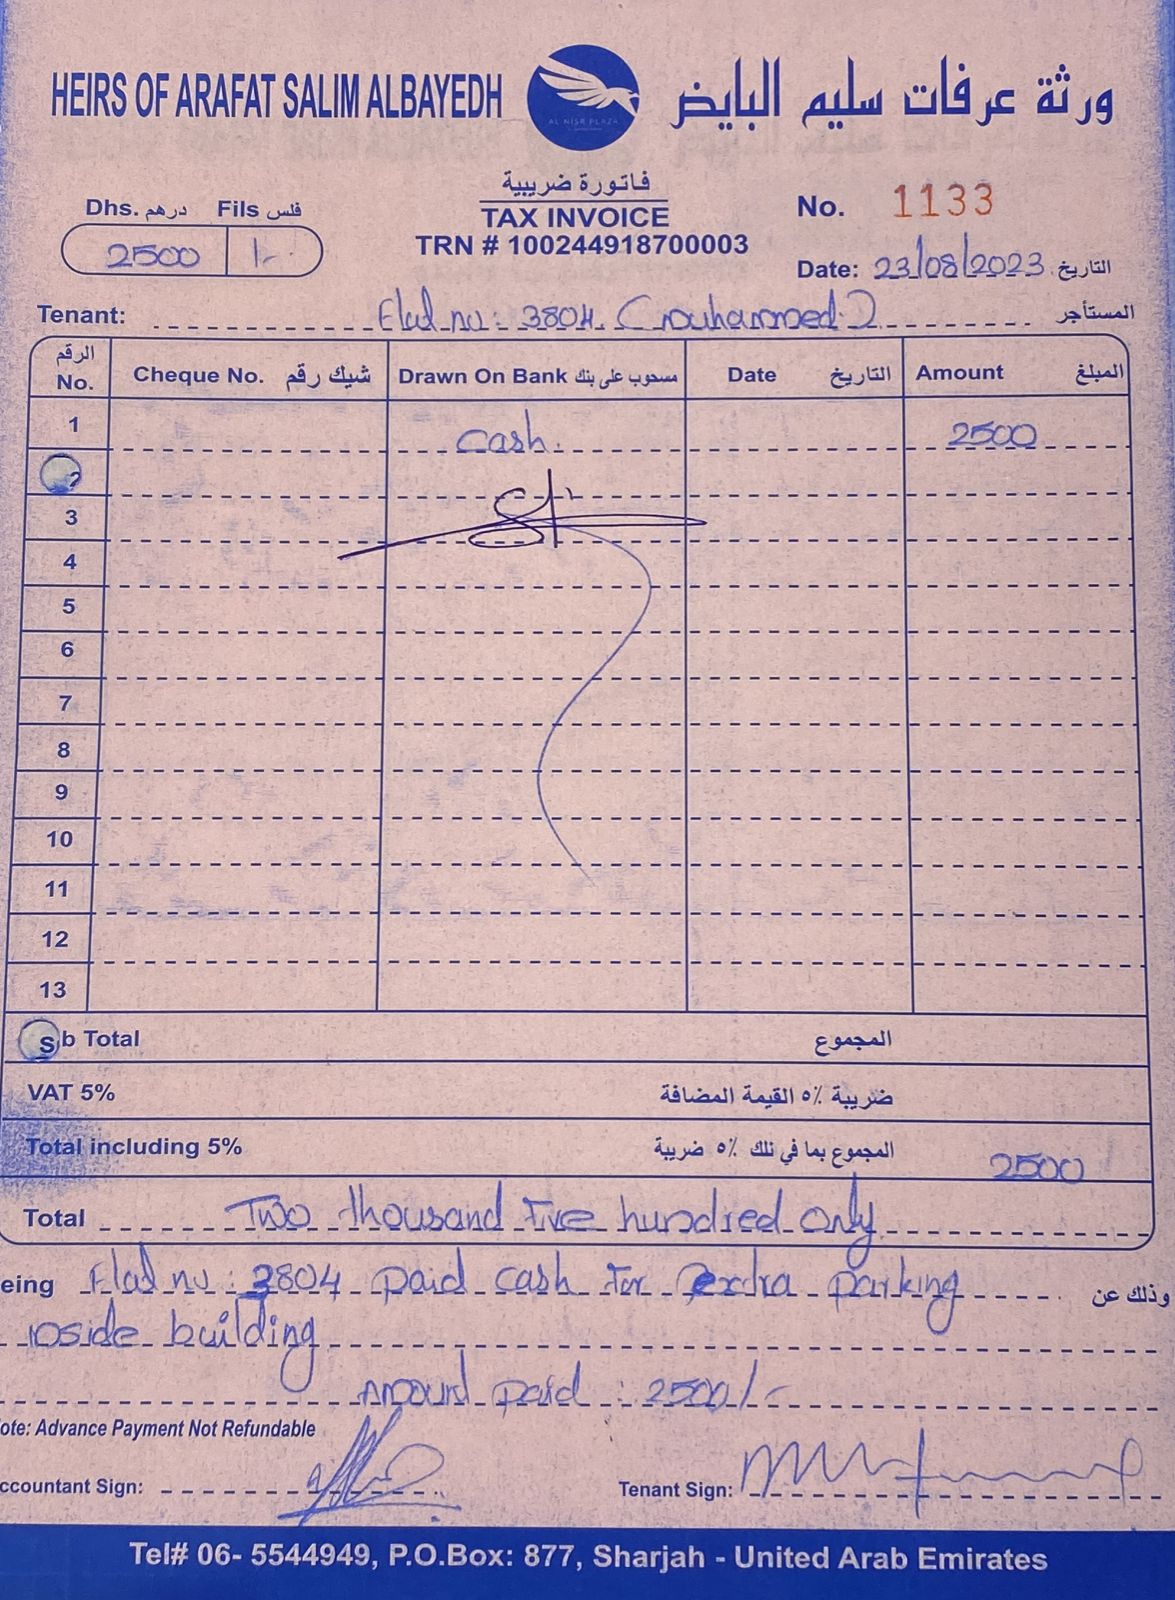 HEIRS OF ARAFAT SALIM ALBAYEDH
ورثة عرفات سليم البايض
AL NISR PLAZA
فاتورة ضريبية
TAX INVOICE
TRN # 100244918700003
Dhs. درهم Fils فلس
2500
No. 1133
Date: 23/08/2023 التاريخ
Tenant: Flat no: 3804 (muhammed) المستأجر
الرقم No. Cheque No. شيك رقم Drawn On Bank مسحوب على بنك Date التاريخ Amount المبلغ
1 Cash. 2500
2
3
4
5
6
7
8
9
10
11
12
13
S b Total المجموع
VAT 5% ضريبة ٥٪ القيمة المضافة
Total including 5% المجموع بما في ذلك ٥٪ ضريبة 2500
Total Two thousand Five hundred only
eing Flat no: 3804 paid cash for extra parking وذلك عن
inside building
Amount paid : 2500/-
ote: Advance Payment Not Refundable
ccountant Sign: Tenant Sign:
Tel# 06- 5544949, P.O.Box: 877, Sharjah - United Arab Emirates